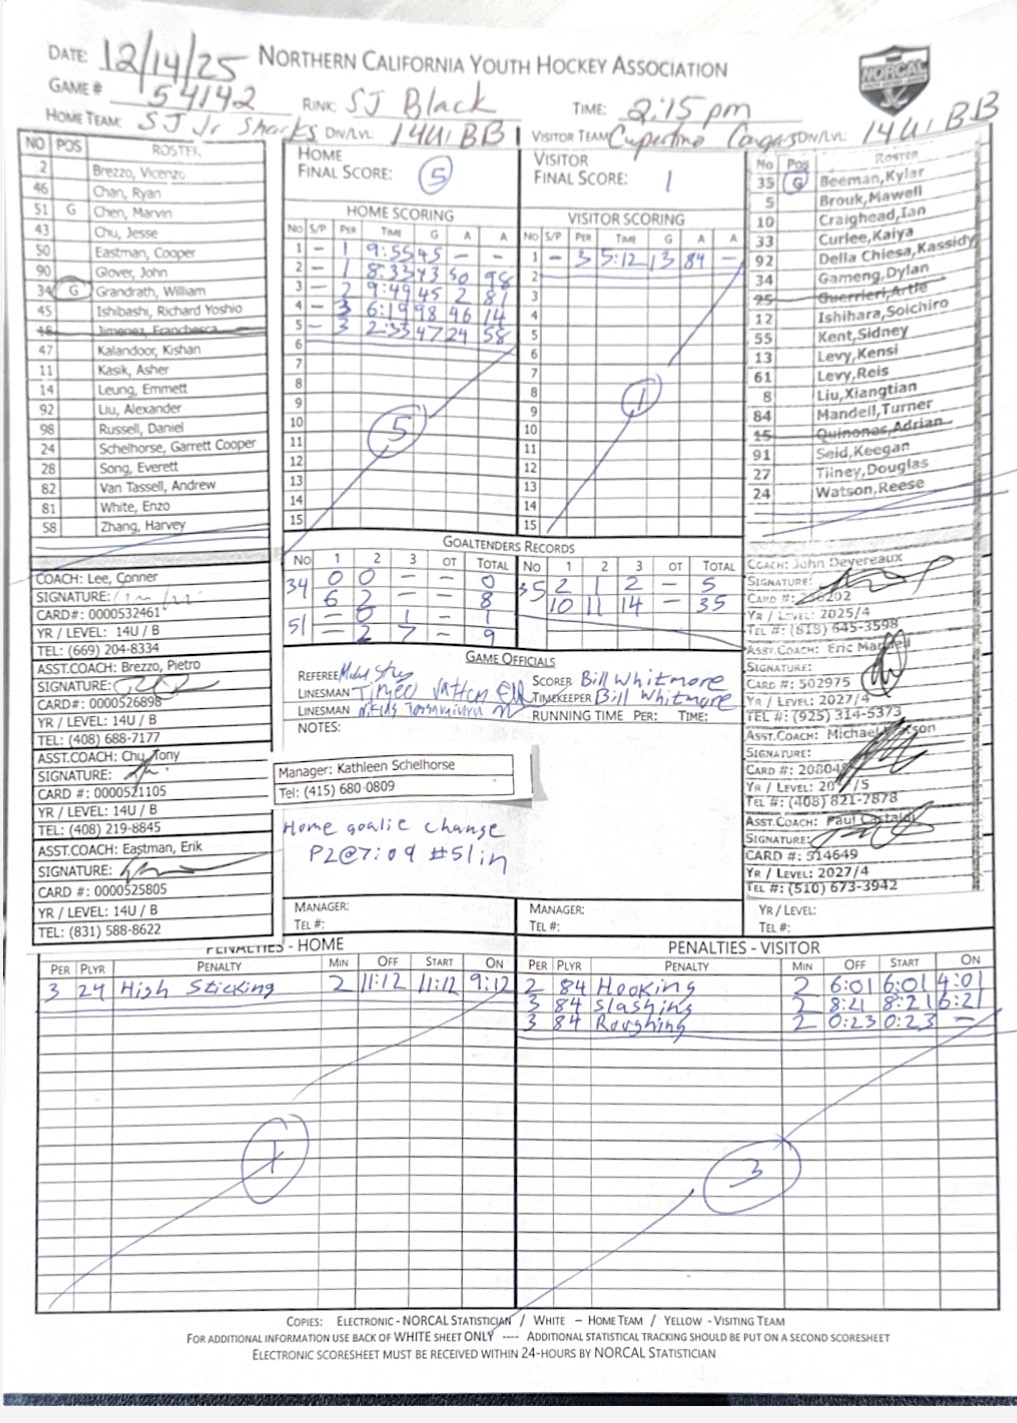 DATE: 12/14/25 NORTHERN CALIFORNIA YOUTH HOCKEY ASSOCIATION
NORCAL
GAME # 54142 RINK: SJ Black TIME: 2:15 pm
HOME TEAM: SJ Jr Sharks DIV/LVL: 14U BB VISITOR TEAM: Cupertino Cougars DIV/LVL: 14U BB
NO POS ROSTER
2 Brezzo, Vicenzo
46 Chan, Ryan
51 G Chen, Marvin
43 Chu, Jesse
50 Eastman, Cooper
90 Glover, John
34 G Grandrath, William
45 Ishibashi, Richard Yoshio
18 Jimenez, Franchesca
47 Kalandoor, Kishan
11 Kasik, Asher
14 Leung, Emmett
92 Liu, Alexander
98 Russell, Daniel
24 Schelhorse, Garrett Cooper
28 Song, Everett
82 Van Tassell, Andrew
81 White, Enzo
58 Zhang, Harvey
HOME
FINAL SCORE: 5
HOME SCORING
NO S/P PER TIME G A A
1 - 1 9:55 45 - -
2 - 1 8:33 43 50 98
3 - 2 9:49 45 2 81
4 - 3 6:19 98 46 14
5 - 3 2:33 47 24 58
6
7
8
9
10
11
12
13
14
15
5
VISITOR
FINAL SCORE: 1
VISITOR SCORING
NO S/P PER TIME G A A
1 - 3 5:12 13 84 -
2
3
4
5
6
7
8
9
10
11
12
13
14
15
1
NO POS ROSTER
35 G Beeman,Kylar
5 Brouk,Mawell
10 Craighead,Ian
33 Curlee,Kaiya
92 Della Chiesa,Kassidy
34 Gameng,Dylan
25 Guerrieri,Artie
12 Ishihara,Soichiro
55 Kent,Sidney
13 Levy,Kensi
61 Levy,Reis
8 Liu,Xiangtian
84 Mandell,Turner
15 Quinones,Adrian
91 Seid,Keegan
27 Tilney,Douglas
24 Watson,Reese
GOALTENDERS RECORDS
NO 1 2 3 OT TOTAL NO 1 2 3 OT TOTAL
34 0 0 - - 0 35 2 1 2 - 5
6 2 - - 8 10 11 14 - 35
51 - 0 1 - 1
- 2 7 - 9
GAME OFFICIALS
REFEREE SCORER Bill Whitmore
LINESMAN TIMEKEEPER Bill Whitmore
LINESMAN RUNNING TIME PER: TIME:
NOTES:
Manager: Kathleen Schelhorse
Tel: (415) 680-0809
Home goalie change
P2@7:09 #51 in
MANAGER:
TEL #:
MANAGER:
TEL #:
COACH: Lee, Conner
SIGNATURE:
CARD#: 0000532461
YR / LEVEL: 14U / B
TEL: (669) 204-8334
ASST.COACH: Brezzo, Pietro
SIGNATURE:
CARD#: 0000526898
YR / LEVEL: 14U / B
TEL: (408) 688-7177
ASST.COACH: Chu, Tony
SIGNATURE:
CARD #: 0000521105
YR / LEVEL: 14U / B
TEL: (408) 219-8845
ASST.COACH: Eastman, Erik
SIGNATURE:
CARD #: 0000525805
YR / LEVEL: 14U / B
TEL: (831) 588-8622
COACH: John Devereaux
SIGNATURE:
CARD #:
YR / LEVEL: 2025/4
TEL #: (813) 645-3598
ASST.COACH: Eric Mandell
SIGNATURE:
CARD #: 502975
YR / LEVEL: 2027/4
TEL #: (925) 314-5373
ASST.COACH: Michael
SIGNATURE:
CARD #:
YR / LEVEL:
TEL #: (408) 821-7878
ASST.COACH: Paul
SIGNATURE:
CARD #: 514649
YR / LEVEL: 2027/4
TEL #: (510) 673-3942
YR / LEVEL:
TEL #:
PENALTIES - HOME
PER PLYR PENALTY MIN OFF START ON
3 24 High Sticking 2 11:12 11:12 9:12
1
PENALTIES - VISITOR
PER PLYR PENALTY MIN OFF START ON
2 84 Hooking 2 6:01 6:01 4:01
3 84 Slashing 2 8:21 8:21 6:21
3 84 Roughing 2 0:23 0:23 -
3
COPIES: ELECTRONIC - NORCAL STATISTICIAN / WHITE – HOME TEAM / YELLOW - VISITING TEAM
FOR ADDITIONAL INFORMATION USE BACK OF WHITE SHEET ONLY ---- ADDITIONAL STATISTICAL TRACKING SHOULD BE PUT ON A SECOND SCORESHEET
ELECTRONIC SCORESHEET MUST BE RECEIVED WITHIN 24-HOURS BY NORCAL STATISTICIAN